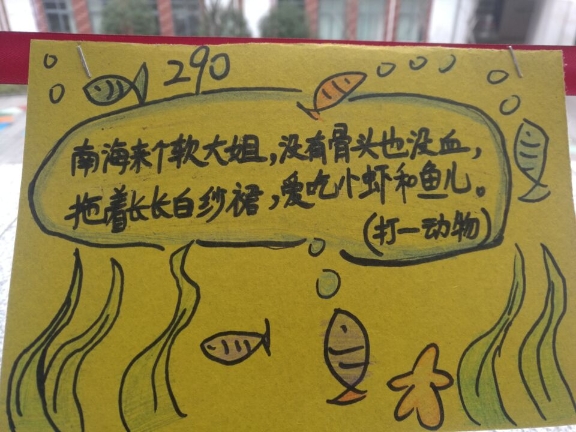 290
南海来个软大姐,没有骨头也没血,
拖着长长白纱裙,爱吃小虾和鱼儿。
(打一动物)